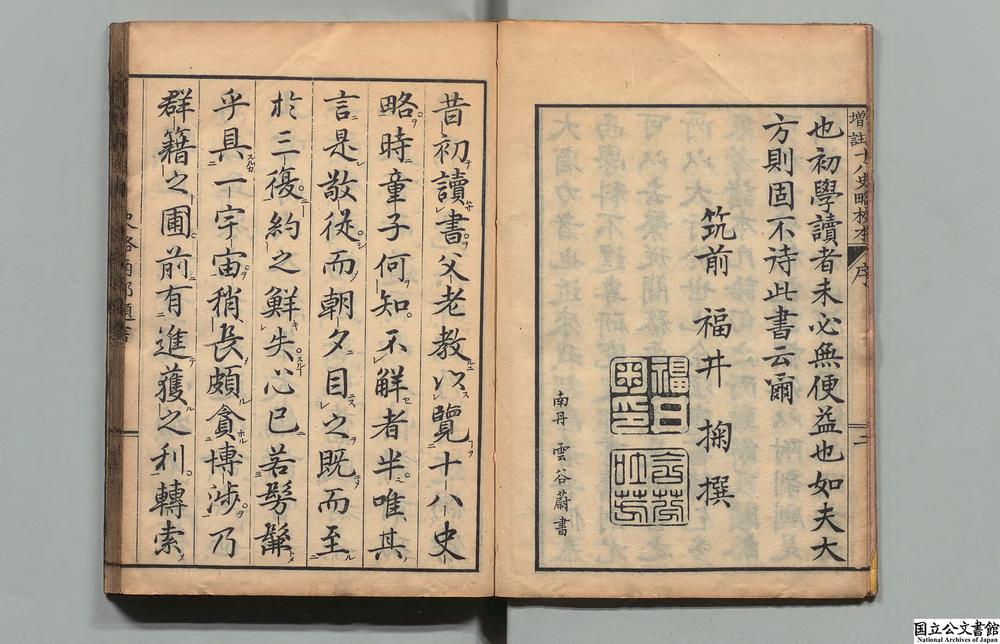 增註十八史略校本
序
二
也初學讀者未必無便益也如夫大
方則固不待此書云爾
筑前 福井 掬 撰
南丹 雲谷蔚書
昔初讀書父老教以覽十八史
略時童子何知不解者半唯其
言是敬從而朝夕目之既而至
於三復約之鮮失心已若髣髴
乎具一宇宙稍長頗貪博涉乃
群籍之圃前有進獲之利轉索
国立公文書館
National Archives of Japan